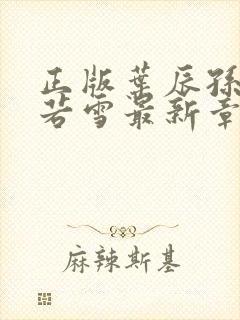 正版葉辰孫
若雪最新章
麻辣斯基